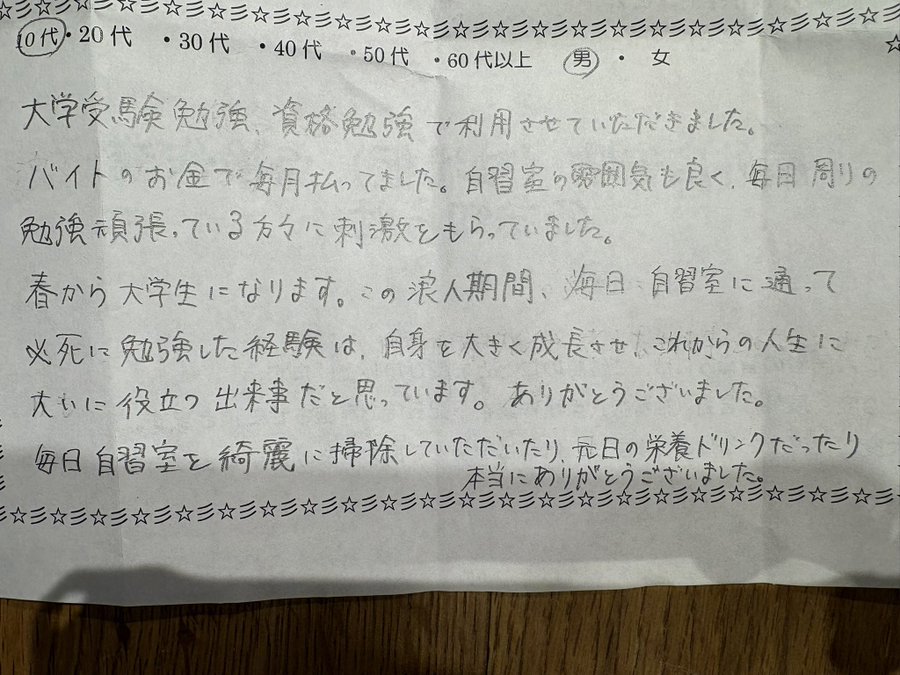 10代・20代 ・30代 ・40代 ・50代 ・60代以上 男 ・ 女
大学受験勉強、資格勉強で利用させていただきました。
バイトのお金で毎月払ってました。自習室の雰囲気も良く、毎日周りの
勉強頑張っている方々に刺激をもらっていました。
春から大学生になります。この浪人期間、毎日 自習室に通って
必死に勉強した経験は、自身を大きく成長させ、これからの人生に
大いに役立つ出来事だと思っています。ありがとうございました。
毎日自習室を綺麗に掃除していただいたり、元日の栄養ドリンクだったり
本当にありがとうございました。